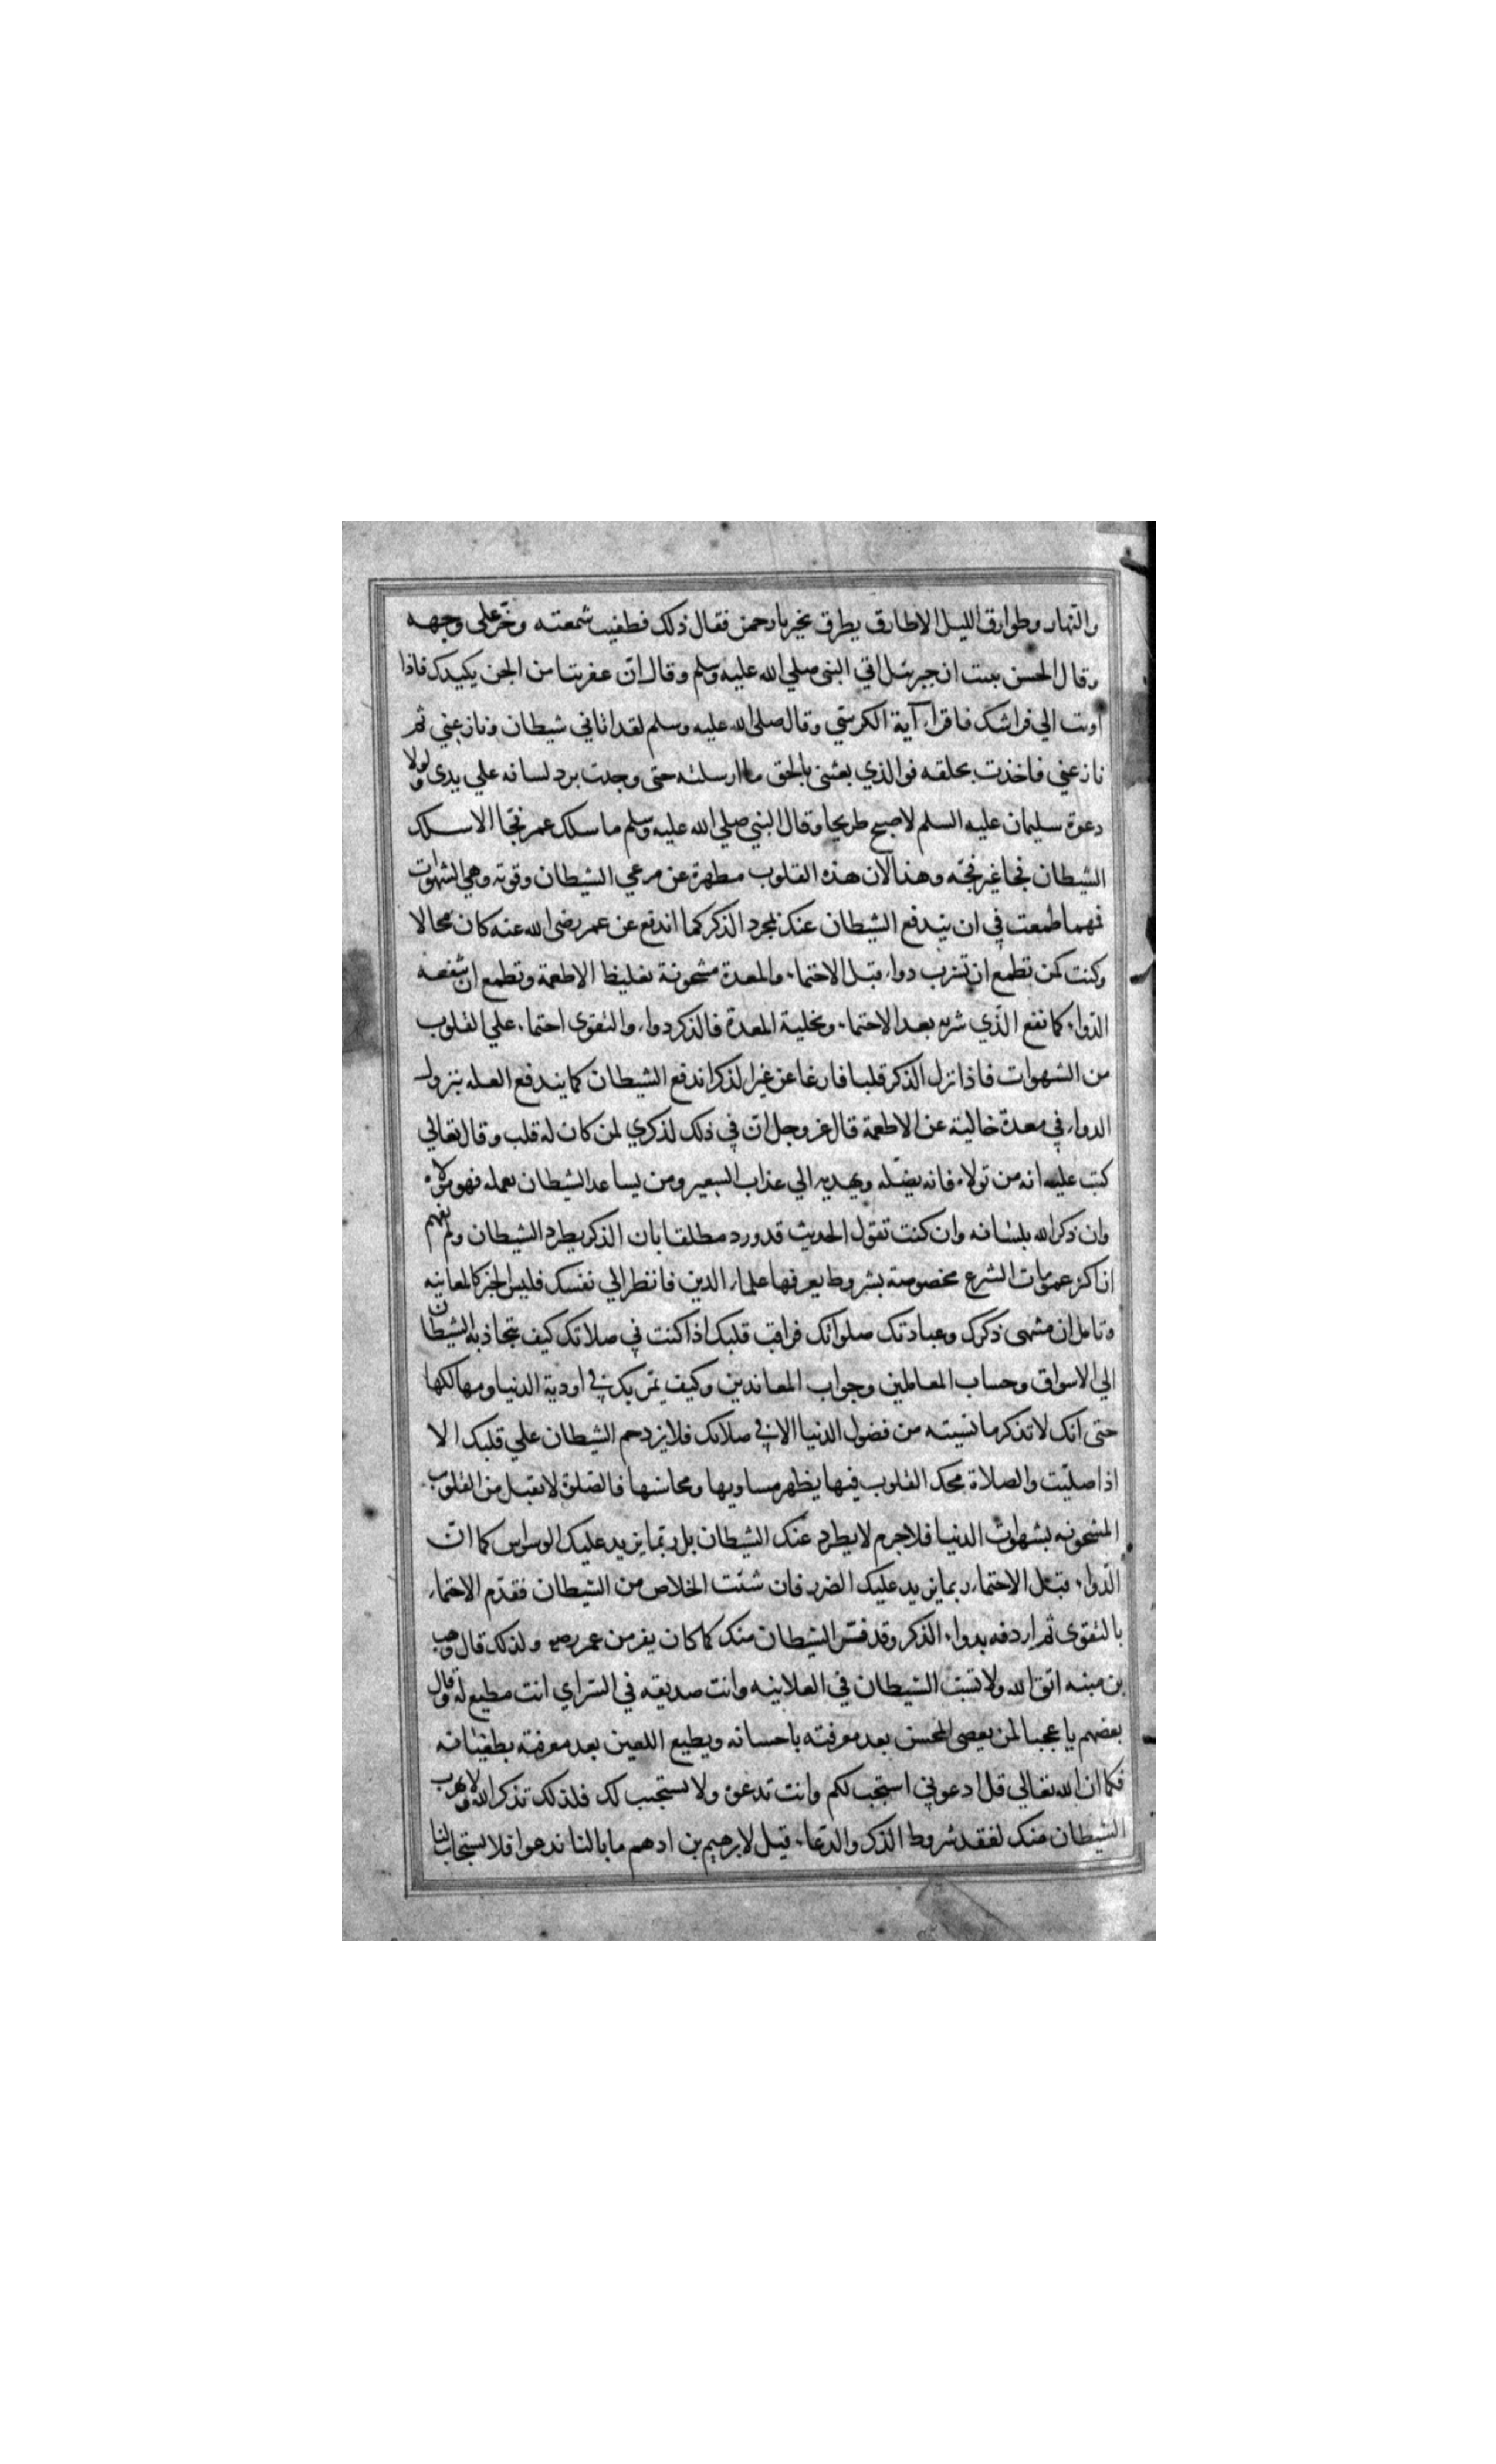 والنهار وطوارق الليل الا طارق يطرق بخير يا رحمن فقال ذلك فطفيت شمعته وخر على وجهه
وقال الحسن نبئت ان جبرئيل اتي النبي صلي الله عليه وسلم وقال ان عفريتا من الجن يكيدك فاذا
اويت الي فراشك فاقراء آية الكرسي وقال صلى الله عليه وسلم لقد اتاني شيطان ونازعني ثم
نازعني فاخذت بحلقه فوالذي بعثني بالحق ما ارسلته حتى وجدت برد لسانه علي يدي ولولا
دعوة سليمان عليه السلم لاصبح طريحا وقال النبي صلي الله عليه وسلم ما سلك عمر فجا الا سلك
الشيطان فجا غير فجه وهذا لان هذه القلوب مطهرة عن مرعي الشيطان وقوته وهي الشهوات
فمهما طمعت في ان يندفع الشيطان عنك بمجرد الذكر كما اندفع عن عمر رضى الله عنه كان محالا
وكنت كمن تطمع ان تشرب دواء قبل الاحتماء والمعدة مشحونة بغليظ الاطعمة وتطمع ان ينفعه
الدواء كما نفع الذي شربه بعد الاحتماء وتخلية المعدة فالذكر دواء والتقوى احتماء علي القلوب
من الشهوات فاذا نزل الذكر قلبا فارغا عن غير الذكر اندفع الشيطان كما يندفع العله بنزول
الدواء في معدة خالية عن الاطعمة قال عز وجل ان في ذلك لذكري لمن كان له قلب وقال تعالي
كتب عليه انه من تولاه فانه يضله ويهديه الي عذاب السعير ومن يساعد الشيطان بعمله فهو مولاه
وان ذكر الله بلسانه وان كنت تقول الحديث قد ورد مطلقا بان الذكر يطرد الشيطان ولم يفهم
ان اكثر عمومات الشرع مخصوصة بشروط يعرفها علماء الدين فانظر الي نفسك فليس الخبر كالمعاينه
وتامل ان منتهى ذكرك وعبادتك صلواتك فراقب قلبك اذا كنت في صلاتك كيف تتجاذبه الشيطان
الي الاسواق وحساب المعاملين وجواب المعاندين وكيف تمر بك في اودية الدنيا ومهالكها
حتى انك لا تذكر ما نسيته من فضول الدنيا الا في صلاتك فلا يزدحم الشيطان علي قلبك الا
اذا صليت والصلاة محك القلوب فيها يظهر مساويها ومحاسنها فالصلوة لا تقبل من القلوب
المشحونه بشهوات الدنيا فلا جرم لا يطرد عنك الشيطان بل ربما يزيد عليك الوسواس كما ان
الدواء قبل الاحتماء ربما يزيد عليك الضرر فان شئت الخلاص من الشيطان فقدم الاحتماء
بالتقوى ثم اردفه بدواء الذكر وقد فر الشيطان منك كما كان يفر من عمر رضي ولذلك قال وهب
بن منبه اتق الله ولا تسب الشيطان في العلانيه وانت صديقه في السر اي انت مطيع له وقال
بعضهم يا عجبا لمن يعصى المحسن بعد معرفته باحسانه ويطيع اللعين بعد معرفته بطغيانه
فكما ان الله تعالي قال ادعوني استجب لكم وانت تدعوه ولا يستجيب لك فلذلك تذكر الله ولا يهرب
الشيطان منك لفقد شروط الذكر والدعاء قيل لابرهيم بن ادهم ما بالنا ندعوا فلا يستجاب لنا